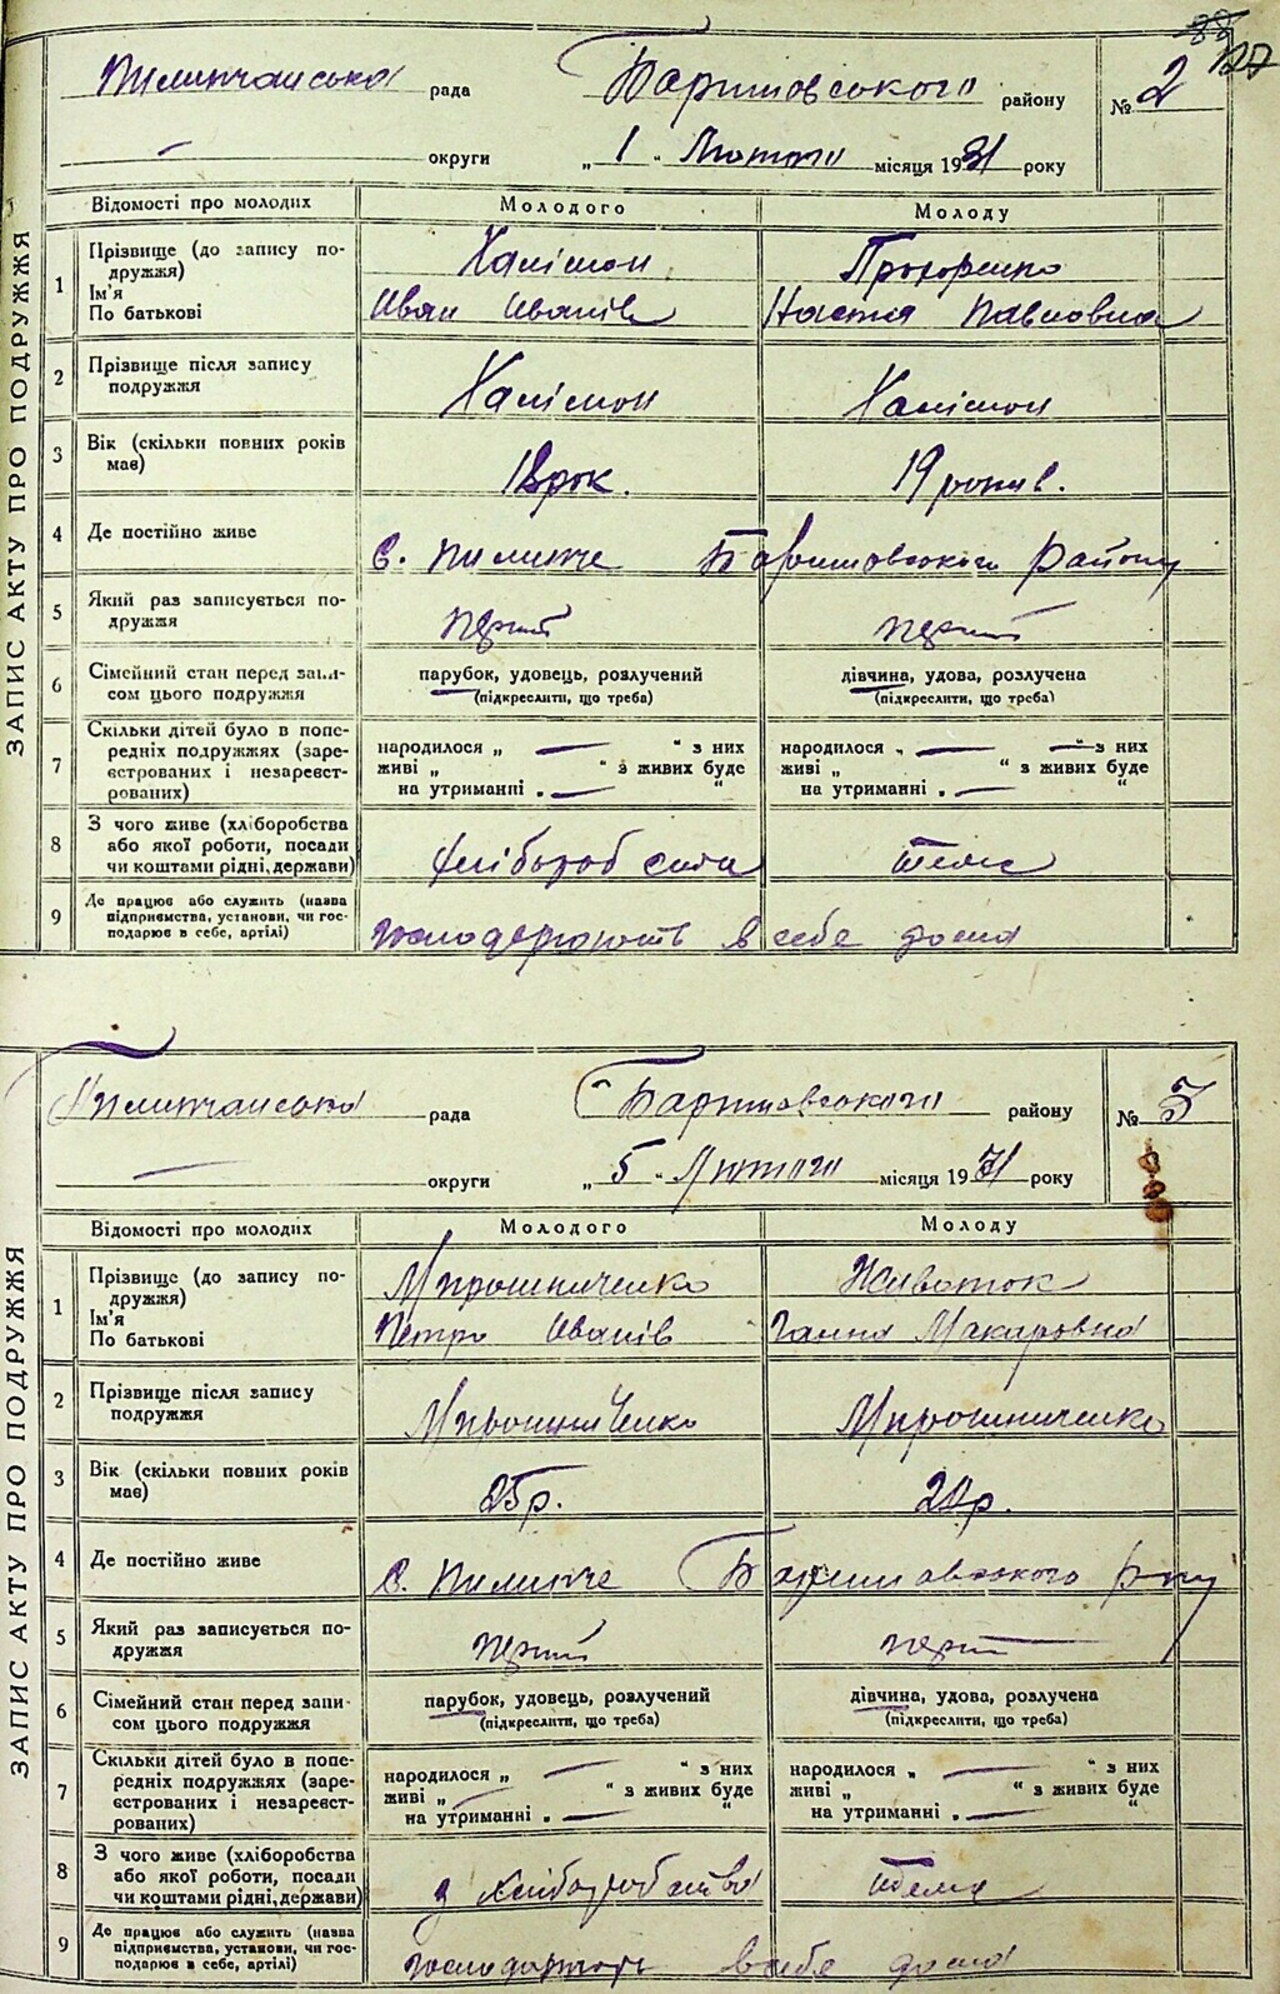 88 127
Пилипчанська рада Баришовського району № 2
— округи „ 1 “ Лютого місяця 1931 року
ЗАПИС АКТУ ПРО ПОДРУЖЖЯ
Відомості про молодих Молодого Молоду
1 Прізвище (до запису по-
дружжя) Халімон Прохоренко
Ім'я
По батькові Иван Иванів Настя Павловна
2 Прізвище після запису
подружжя Халімон Халімон
3 Вік (скільки повних років
має) 18 рок. 19 років.
4 Де постійно живе С. Пилипче Баришовського Району
5 Який раз записується по-
дружжя перший перший
6 Сімейний стан перед запи-
сом цього подружжя
парубок, удовець, розлучений дівчина, удова, розлучена
(підкреслити, що треба) (підкреслити, що треба)
7 Скільки дітей було в попе-
редніх подружжях (заре-
єстрованих і незареєст-
рованих)
народилося „ — “ з них народилося „ — — з них
живі „ “ з живих буде живі „ “ з живих буде
на утриманні „ — “ на утриманні „ — “
8 З чого живе (хліборобства
або якої роботи, посади
чи коштами рідні, держави) хлібороб теже
9 Де працює або служить (назва
підприємства, установи, чи гос-
подарює в себе, артілі) господарюють в себе дома
Пилипчанська рада Баришовського району № 3
— округи „ 5 “ Лютого місяця 1931 року
ЗАПИС АКТУ ПРО ПОДРУЖЖЯ
Відомості про молодих Молодого Молоду
1 Прізвище (до запису по-
дружжя) Мирошниченко Животок
Ім'я
По батькові Петро Иванів Ганна Макаровна
2 Прізвище після запису
подружжя Мирошниченко Мирошниченко
3 Вік (скільки повних років
має) 25 р. р.
4 Де постійно живе С. Пилипче Баришовського р-ну
5 Який раз записується по-
дружжя перший перш
6 Сімейний стан перед запи-
сом цього подружжя
парубок, удовець, розлучений дівчина, удова, розлучена
(підкреслити, що треба) (підкреслити, що треба)
7 Скільки дітей було в попе-
редніх подружжях (заре-
єстрованих і незареєст-
рованих)
народилося „ — “ з них народилося „ — “ з них
живі „ — “ з живих буде живі „ “ з живих буде
на утриманні „ — “ на утриманні „ — “
8 З чого живе (хліборобства
або якої роботи, посади
чи коштами рідні, держави) з хліборобства теже
9 Де працює або служить (назва
підприємства, установи, чи гос-
подарює в себе, артілі) в себе дома